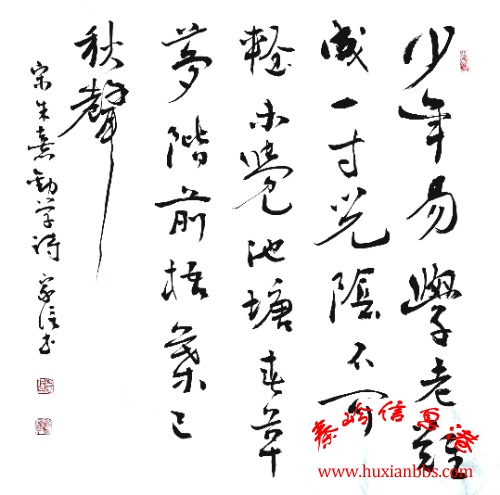 少年易學老難
成一寸光陰不可
輕未覺池塘春草
夢階前梧葉已
秋聲
宋朱熹勸学詩 家信书
www.huxianbbs.com